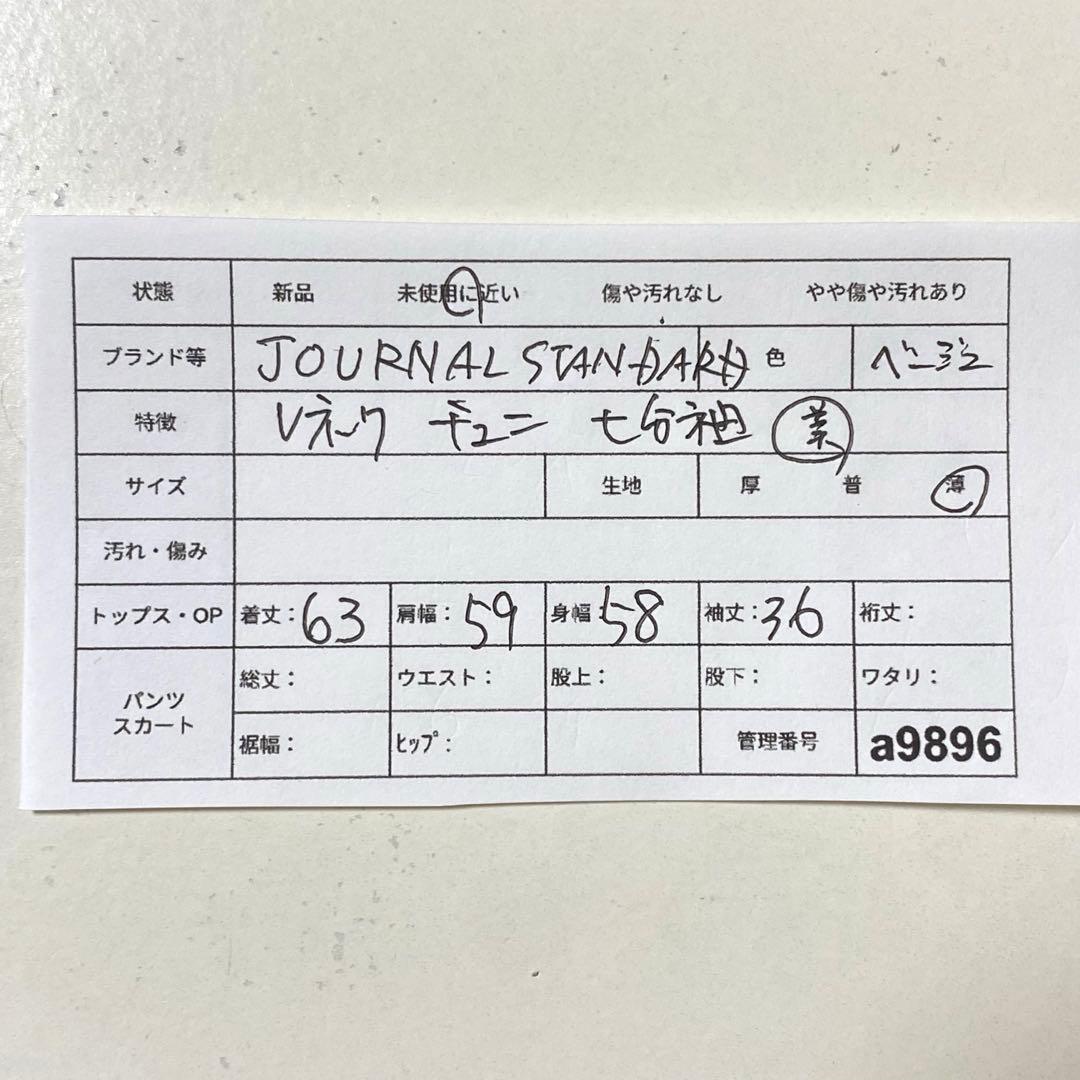 状態 新品 未使用に近い 傷や汚れなし やや傷や汚れあり
ブランド等 JOURNAL STANDARD 色 ベージュ
特徴 Vネック チュニ 七分袖
サイズ 生地 厚 普 薄
汚れ・傷み
トップス・OP 着丈：63 肩幅：59 身幅 58 袖丈：36 裄丈：
パンツ スカート 総丈： ウエスト： 股上： 股下： ワタリ：
裾幅： ヒップ： 管理番号 a9896